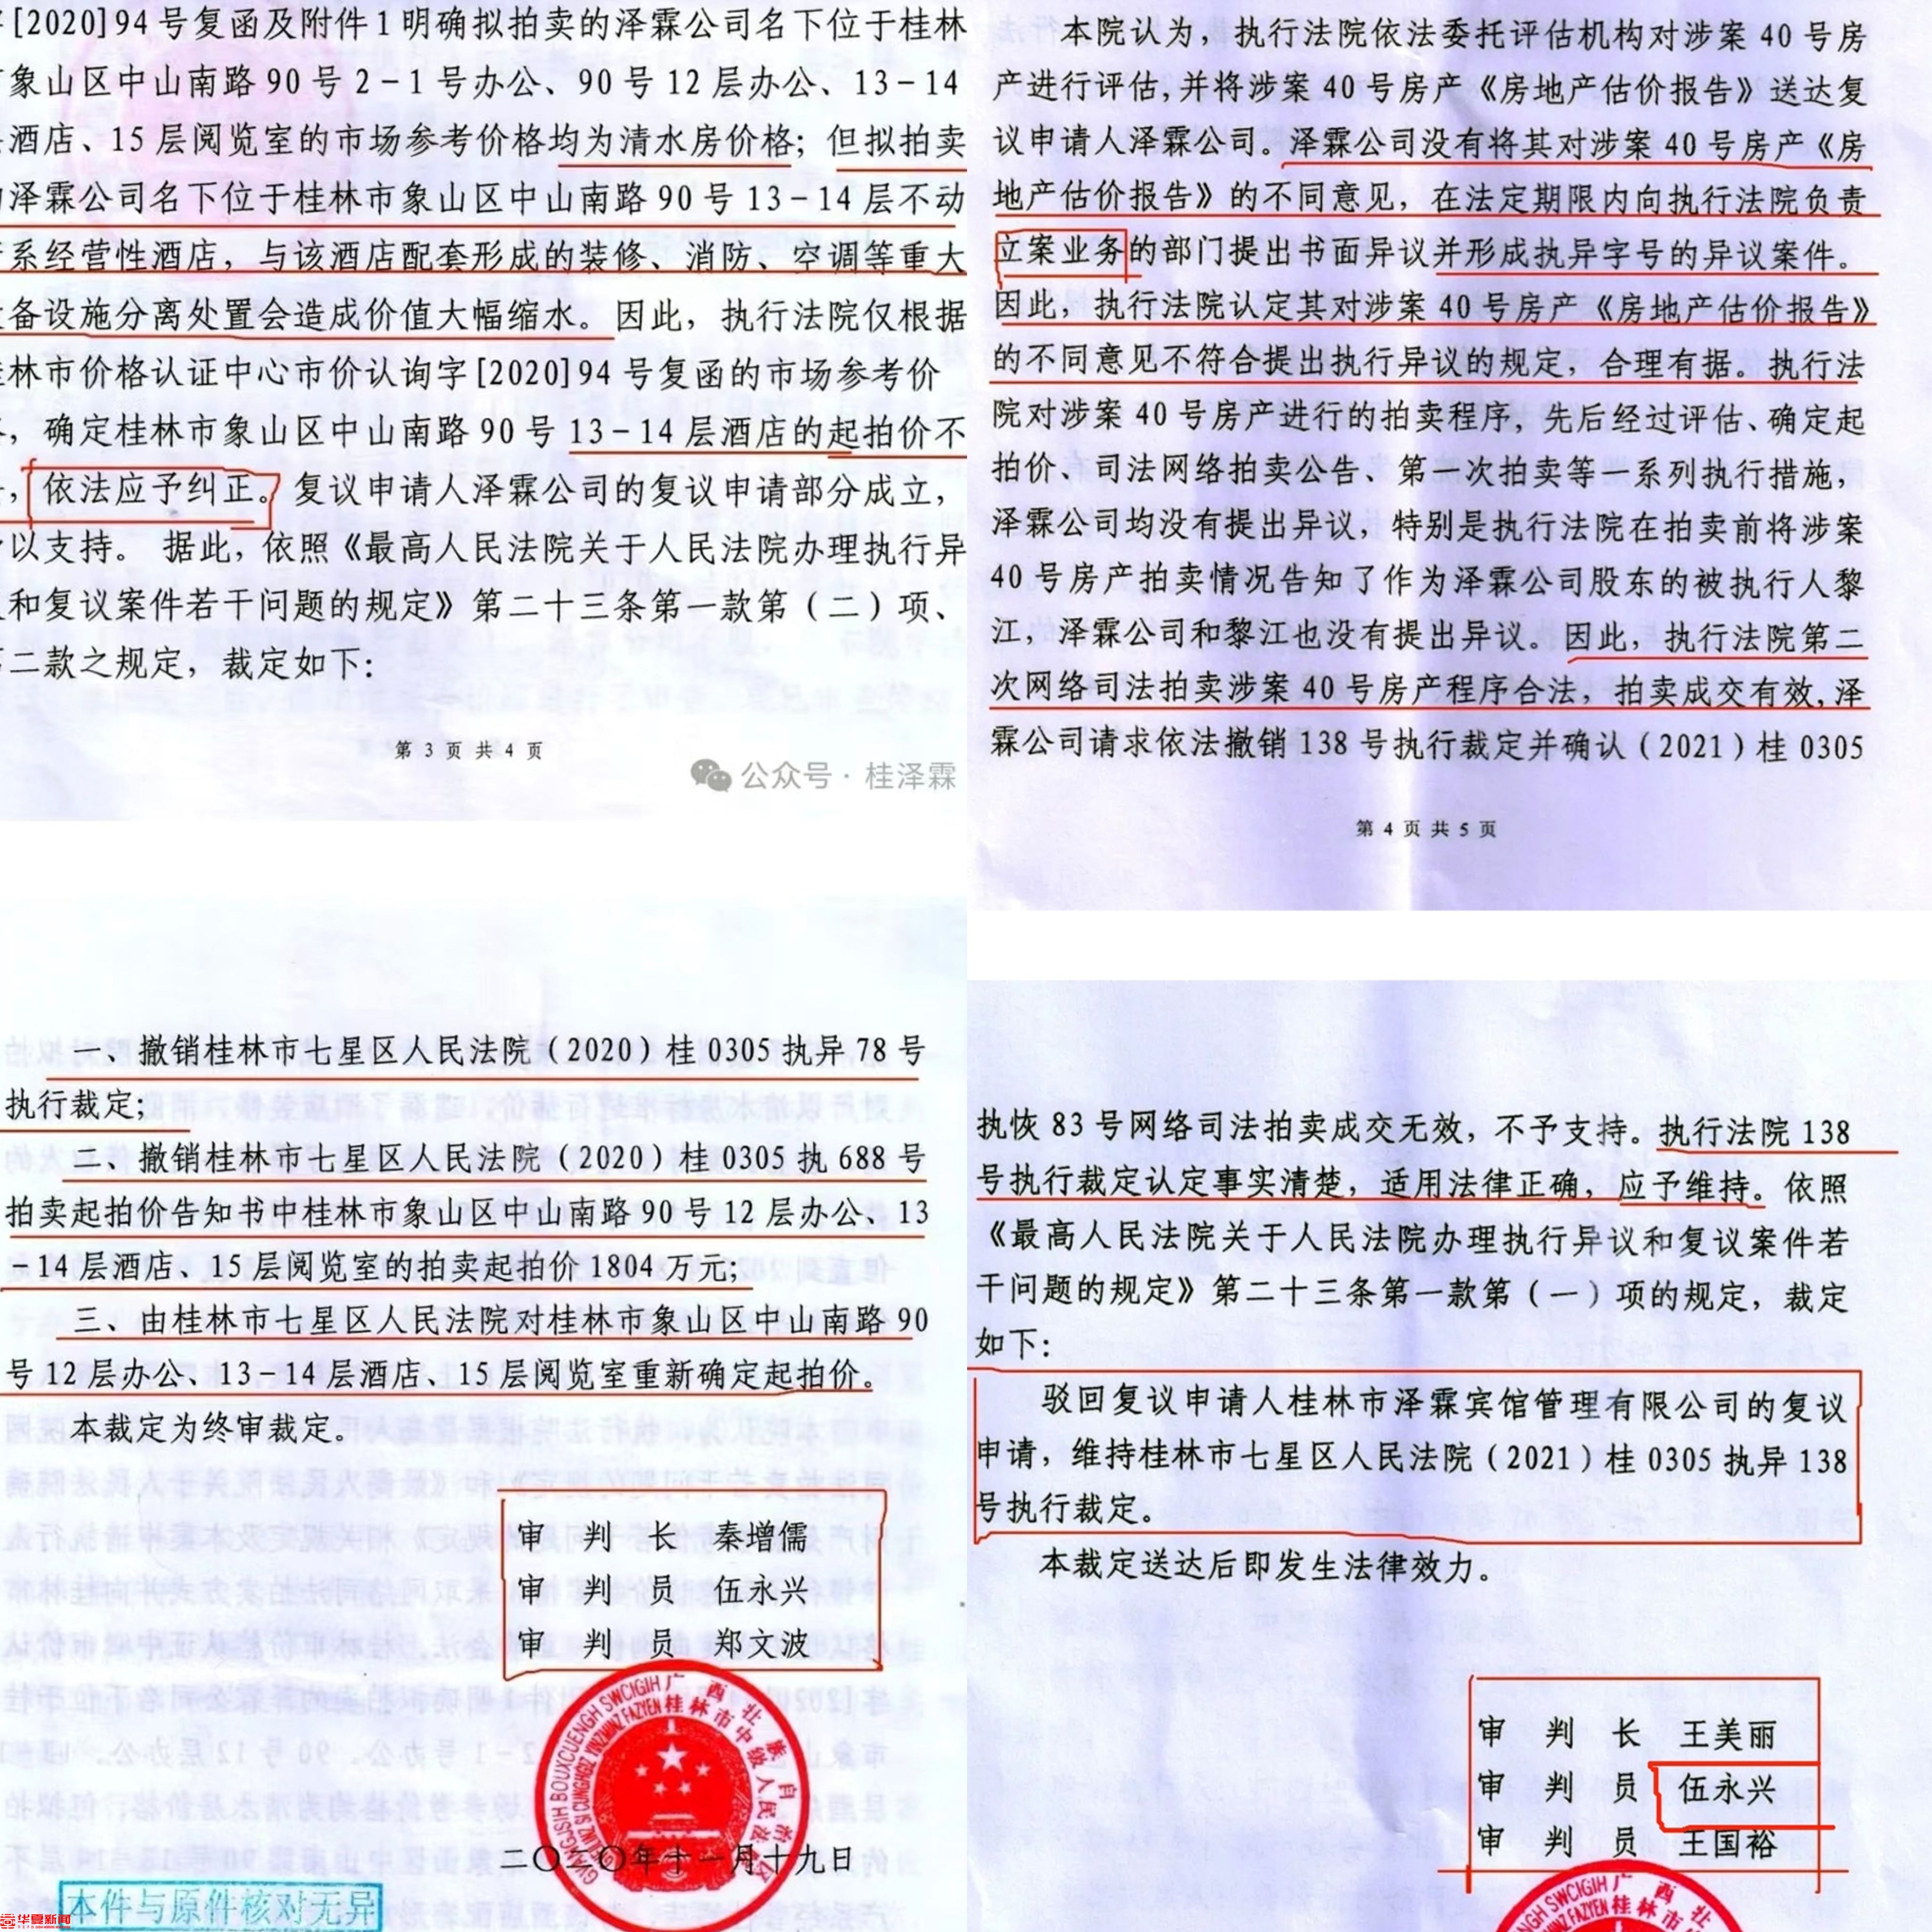 [2020]94号复函及附件1明确拟拍卖的泽霖公司名下位于桂林
象山区中山南路90号2-1号办公、90号12层办公、13-14
酒店、15层阅览室的市场参考价格均为清水房价格；但拟拍卖
泽霖公司名下位于桂林市象山区中山南路90号13-14层不动
系经营性酒店，与该酒店配套形成的装修、消防、空调等重大
备设施分离处置会造成价值大幅缩水。因此，执行法院仅根据
林市价格认证中心市价认询字[2020]94号复函的市场参考价
，确定桂林市象山区中山南路90号13-14层酒店的起拍价不
，依法应予纠正。复议申请人泽霖公司的复议申请部分成立，
以支持。据此，依照《最高人民法院关于人民法院办理执行异
和复议案件若干问题的规定》第二十三条第一款第（二）项、
第二款之规定，裁定如下：
第 3 页 共 4 页
公众号·桂泽霖
本院认为，执行法院依法委托评估机构对涉案40号房
产进行评估，并将涉案40号房产《房地产估价报告》送达复
议申请人泽霖公司。泽霖公司没有将其对涉案40号房产《房
地产估价报告》的不同意见，在法定期限内向执行法院负责
立案业务的部门提出书面异议并形成执异字号的异议案件。
因此，执行法院认定其对涉案40号房产《房地产估价报告》
的不同意见不符合提出执行异议的规定，合理有据。执行法
院对涉案40号房产进行的拍卖程序，先后经过评估、确定起
拍价、司法网络拍卖公告、第一次拍卖等一系列执行措施，
泽霖公司均没有提出异议，特别是执行法院在拍卖前将涉案
40号房产拍卖情况告知了作为泽霖公司股东的被执行人黎
江，泽霖公司和黎江也没有提出异议。因此，执行法院第二
次网络司法拍卖涉案40号房产程序合法，拍卖成交有效，泽
霖公司请求依法撤销138号执行裁定并确认（2021）桂0305
第 4 页 共 5 页
一、撤销桂林市七星区人民法院（2020）桂0305执异78号
执行裁定；
二、撤销桂林市七星区人民法院（2020）桂0305执688号
拍卖起拍价告知书中桂林市象山区中山南路90号12层办公、13
-14层酒店、15层阅览室的拍卖起拍价1804万元；
三、由桂林市七星区人民法院对桂林市象山区中山南路90
号12层办公、13-14层酒店、15层阅览室重新确定起拍价。
本裁定为终审裁定。
审 判 长 秦增儒
审 判 员 伍永兴
审 判 员 郑文波
二〇二〇年十一月十九日
广西壮族自治区
桂林市中级人民法院
本件与原件核对无异
华夏新闻
执恢83号网络司法拍卖成交无效，不予支持。执行法院138
号执行裁定认定事实清楚，适用法律正确，应予维持。依照
《最高人民法院关于人民法院办理执行异议和复议案件若
干问题的规定》第二十三条第一款第（一）项的规定，裁定
如下：
驳回复议申请人桂林市泽霖宾馆管理有限公司的复议
申请，维持桂林市七星区人民法院（2021）桂0305执异138
号执行裁定。
本裁定送达后即发生法律效力。
审 判 长 王美丽
审 判 员 伍永兴
审 判 员 王国裕